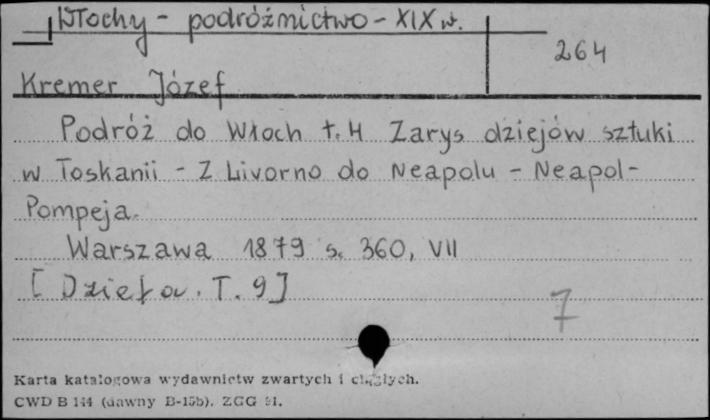 Włochy - podróżnictwo - XIX w.
264
Kremer Józef
Podróż do Włoch t. 4 Zarys dziejów sztuki
w Toskanii - Z Livorno do Neapolu - Neapol-
Pompeja.
Warszawa 1879 s. 360, VII
[Dzieła. T. 9]
7
Karta katalogowa wydawnictw zwartych i ciągłych.
CWD B 144 (dawny B-15b). ZGG